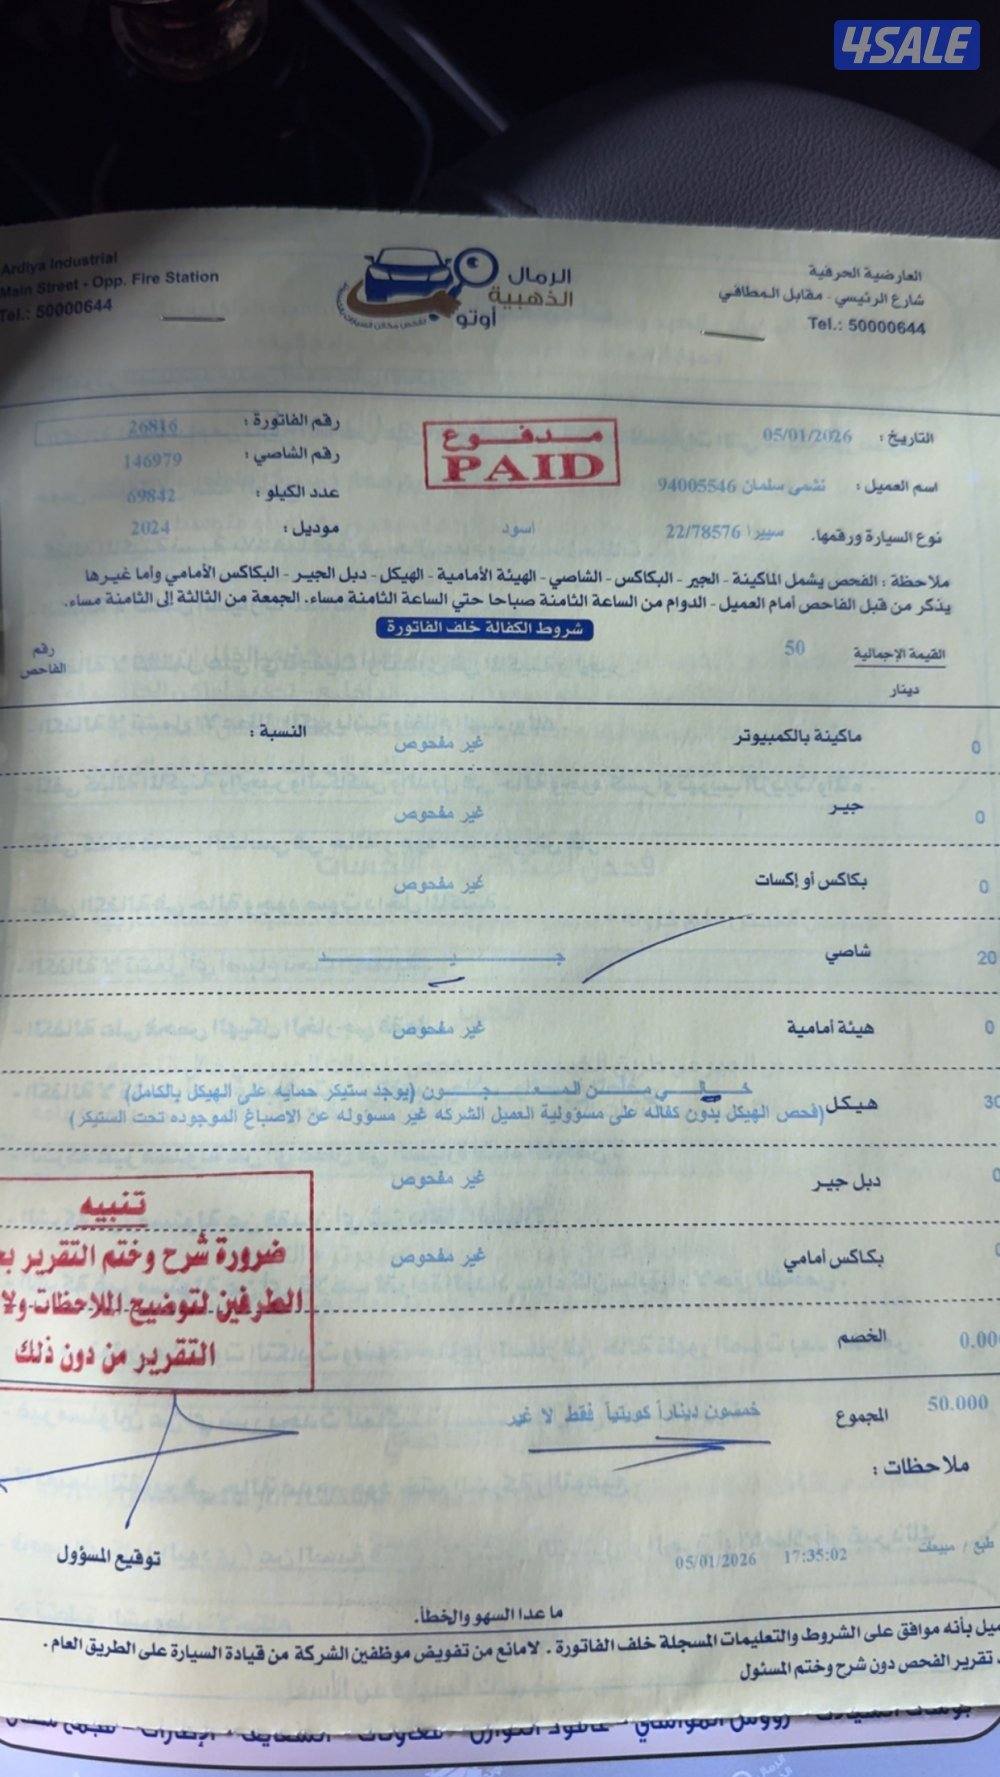 4SALE
Ardiya Industrial
Main Street - Opp. Fire Station
Tel.: 50000644
الرمال
الذهبية
أوتو
العارضية الحرفية
شارع الرئيسي - مقابل المطافي
Tel.: 50000644
رقم الفاتورة : 26816
رقم الشاصي : 146979
عدد الكيلو : 69842
موديل : 2024
مدفوع
PAID
التاريخ : 05/01/2026
اسم العميل : نشمي سلمان 94005546
نوع السيارة ورقمها. سييرا 22/78576 اسود
ملاحظة : الفحص يشمل الماكينة - الجير - البكاكس - الشاصي - الهيئة الأمامية - الهيكل - دبل الجير - البكاكس الأمامي وأما غيرها
يذكر من قبل الفاحص أمام العميل - الدوام من الساعة الثامنة صباحا حتي الساعة الثامنة مساء. الجمعة من الثالثة إلى الثامنة مساء.
شروط الكفالة خلف الفاتورة
القيمة الإجمالية 50
دينار
رقم
الفاحص
ماكينة بالكمبيوتر غير مفحوص النسبة : 0
جير غير مفحوص 0
بكاكس أو إكسات غير مفحوص 0
شاصي جـــيـــد 20
هيئة أمامية غير مفحوص 0
خـــالـــي مـــن المـعـــجـــون (يوجد ستيكر حمايه على الهيكل بالكامل)
هيكل (فحص الهيكل بدون كفاله على مسؤولية العميل الشركه غير مسؤوله عن الاصباغ الموجوده تحت الستيكر) 30
دبل جير غير مفحوص 0
بكاكس أمامي غير مفحوص
تنبيه
ضرورة شرح وختم التقرير
الطرفين لتوضيح الملاحظات ولا
التقرير من دون ذلك
الخصم 0.000
المجموع خمسون ديناراً كويتياً فقط لا غير 50.000
ملاحظات :
طبع / مبيعات 17:35:02 05/01/2026
توقيع المسؤول
ما عدا السهو والخطأ.
بأنه موافق على الشروط والتعليمات المسجلة خلف الفاتورة . لامانع من تفويض موظفين الشركة من قيادة السيارة على الطريق العام .
تقرير الفحص دون شرح وختم المسئول